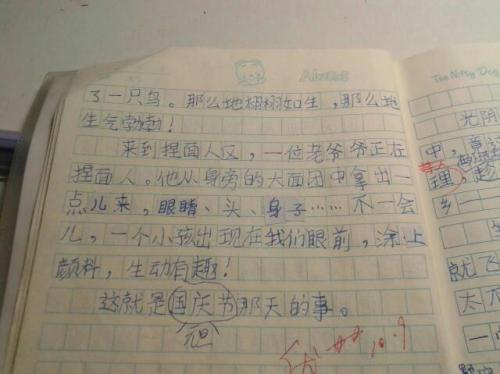 了一只鸟。那么地栩栩如生，那么地
生气勃勃！
来到捏面人区，一位老爷爷正在
捏面人。他从身旁的大面团中拿出一
点儿来，眼睛、头、身子……不一会
儿，一个小孩出现在我们眼前，涂上
颜料，生动有趣！
这就是国庆节那天的事。
元旦
优 10.9
The Nifty Dog
光阴
中，
理，
乡一
就飞
太不
一